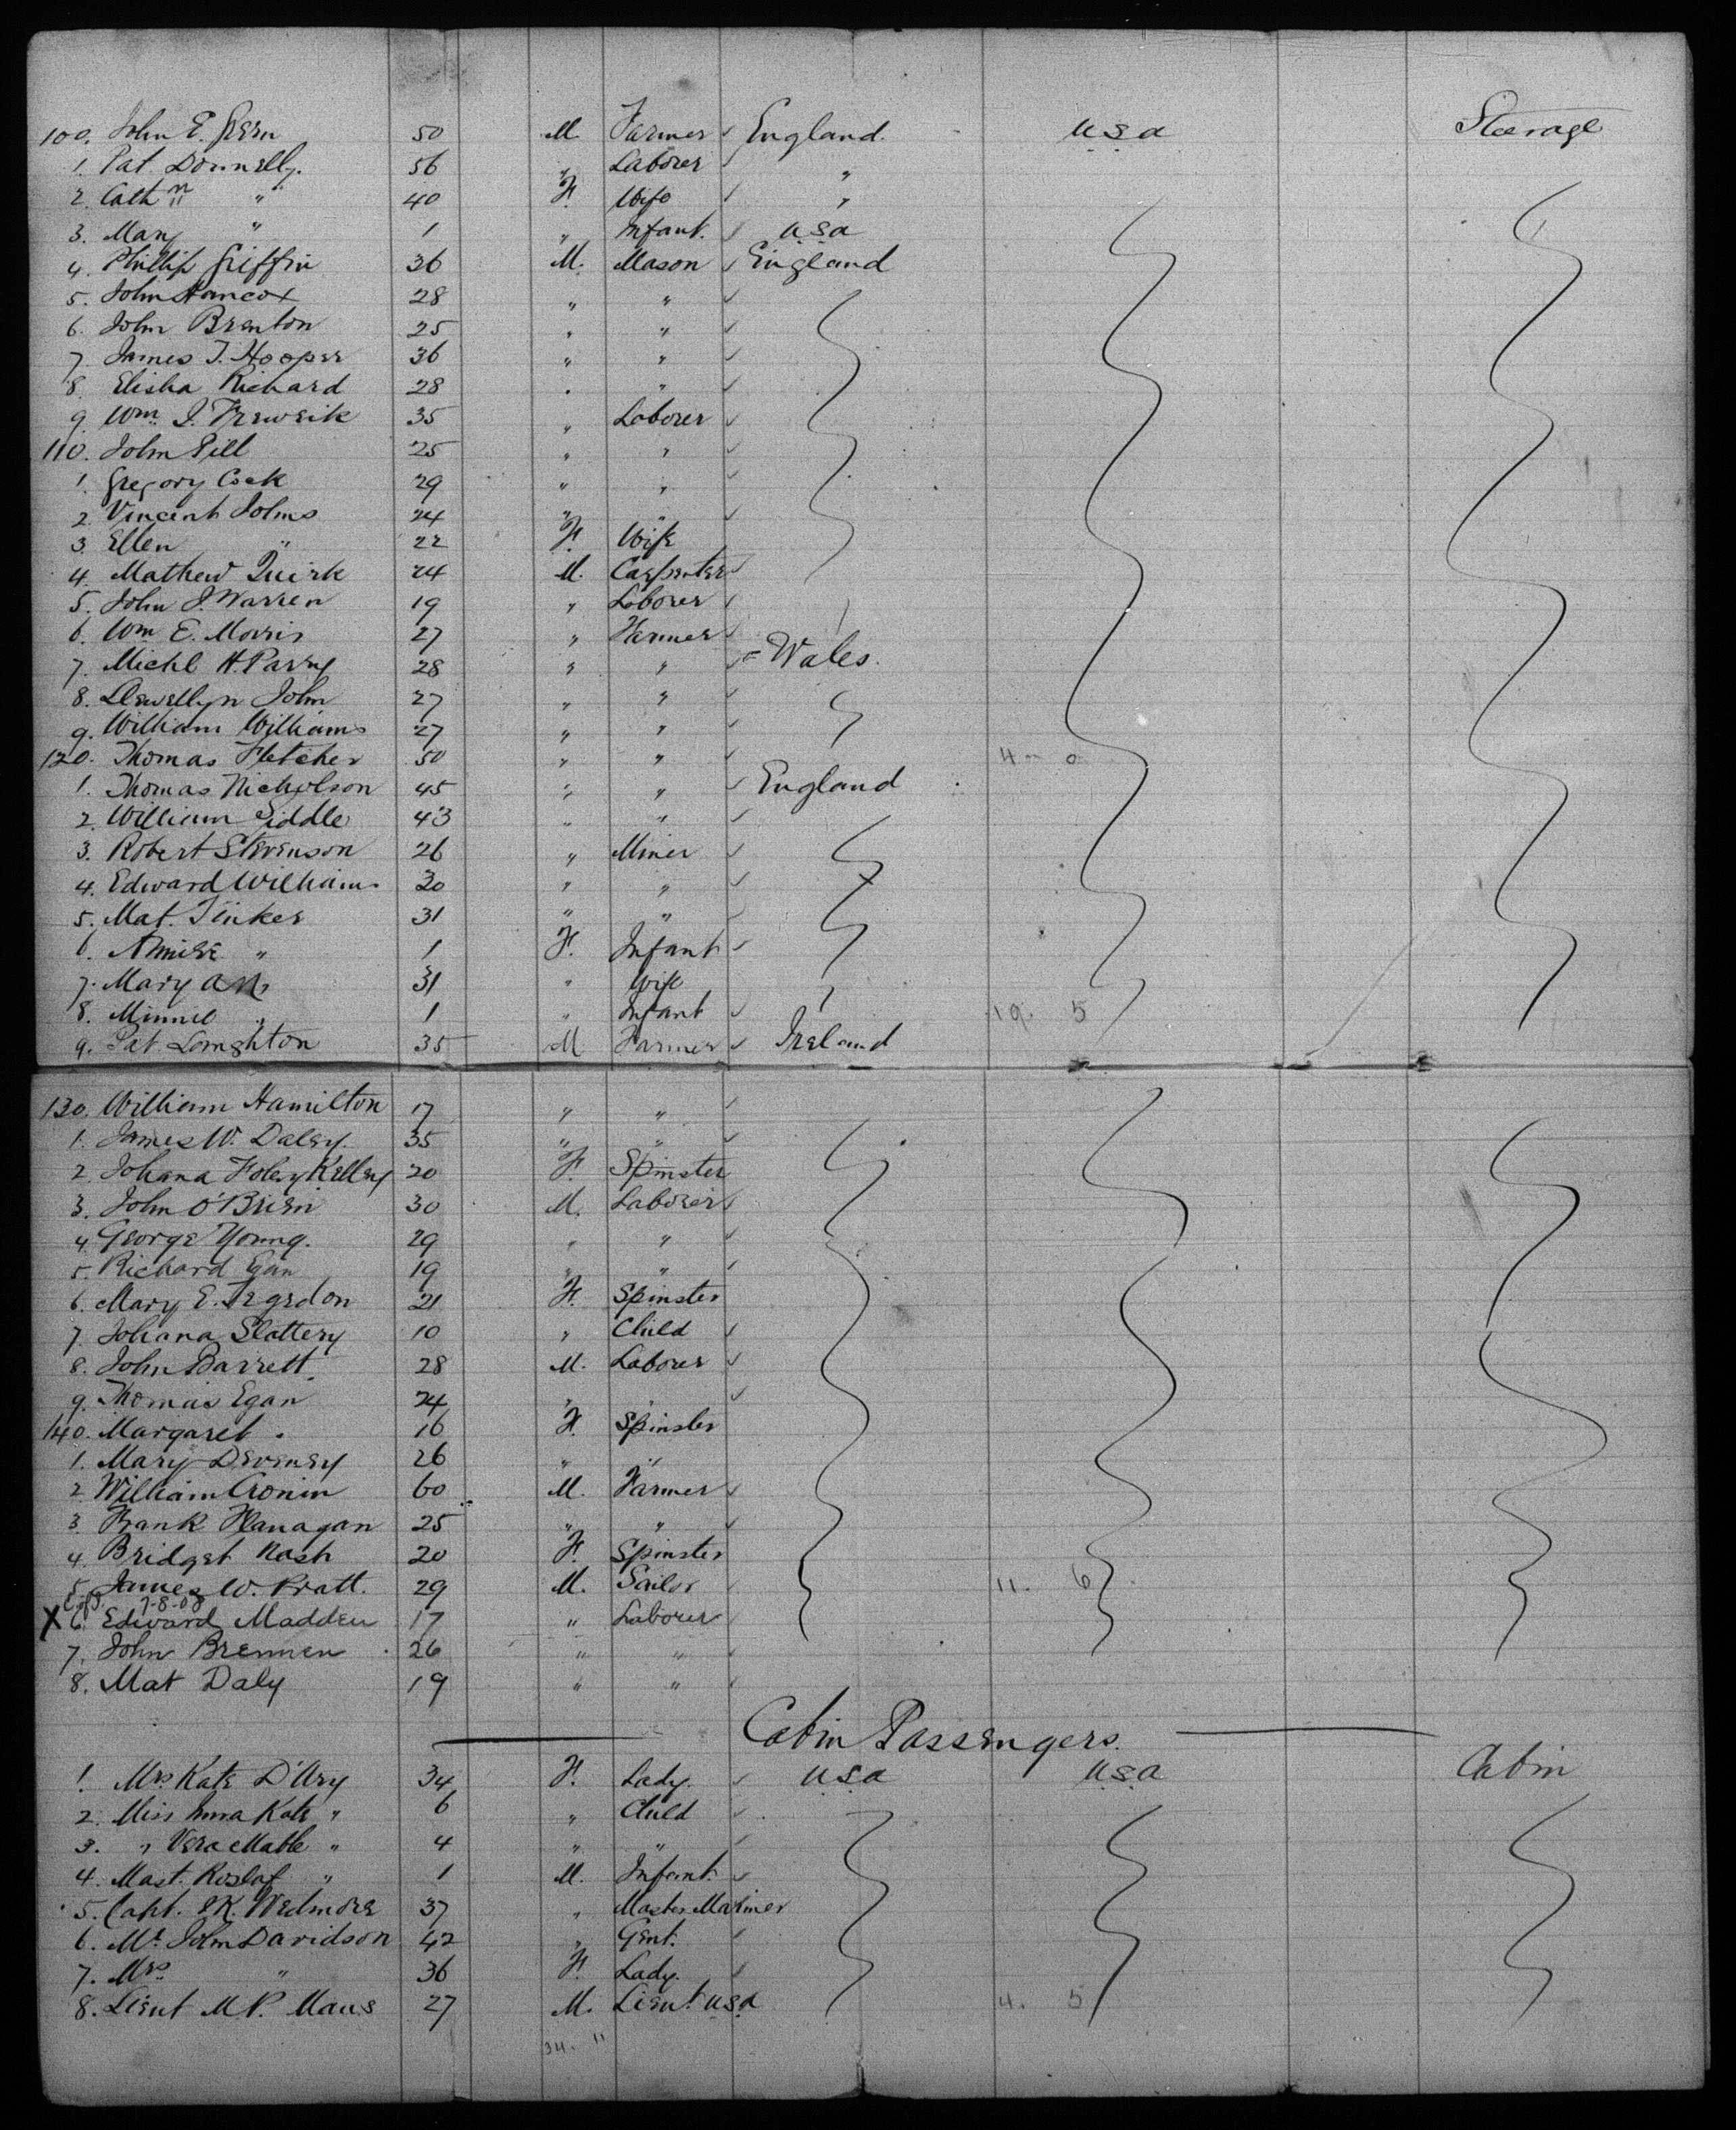 100. John E. Green 50 M. Farmer ✓ England. U.S.A Steerage
1. Pat Donnelly. 56 " Laborer ✓ "
2. Cathn " 40 F. Wife ✓ "
3. Mary " 1 " Infant. ✓ U.S.A
4. Phillip Griffin 36 M. Mason ✓ England
5. John Hancox 28 " " ✓
6. John Brenton 25 " " ✓
7. James T. Hooper 36 " " ✓
8. Elisha Richard 28 " " ✓
9. Wm. J. 35 " Laborer ✓
110. John Pill 25 " " ✓
1. Gregory Cock 29 " " ✓
2. Vincent Johns 24 " " ✓
3. Ellen " 22 F. Wife
4. Mathew Quirk 24 M. Carpenter ✓
5. John J. Warren 19 " Laborer ✓
6. Wm E. Morris 27 " Farmer ✓
7. Michl H. Parry 28 " " ✓ Wales.
8. Llewellyn John 27 " " ✓
9. William Williams 27 " " ✓
120. Thomas Fletcher 50 " " ✓ 4 - 0
1. Thomas Nicholson 45 " " ✓ England
2. William Siddle 43 " " ✓
3. Robert Stevenson 26 " Miner ✓
4. Edward Williams 30 " " ✓
5. Mat. Tinker 31 " " ✓
6. " 1 F. Infant ✓
7. Mary Ann 31 " Wife
8. Minnie " 1 " Infant ✓ 19. 5
9. Pat Loughton 35 M Farmer ✓ Ireland
130. William Hamilton 17 " " ✓
1. James W. Daley. 35 " " ✓
2. Johana Foley Kelley 20 F. Spinster
3. John O'Brien 30 M. Laborer ✓
4. George Young. 29 " " ✓
5. Richard Egan 19 " " ✓
6. Mary E. 21 F. Spinster
7. Johana Slattery 10 " Child ✓
8. John Barrett 28 M. Laborer ✓
9. Thomas Egan 24 " " ✓
140. Margaret " 16 F. Spinster
1. Mary Deveney 26 " "
2. William Cronin 60 M. Farmer ✓
3. Frank Flanagan 25 " " ✓
4. Bridget Nash 20 F. Spinster
5. James W. Pratt. 29 M. Sailor ✓ 11. 6
7-8-08
X 6. Edward Madden 17 " Laborer ✓
7. John Brennen 26 " " ✓
8. Mat Daly 19 " " ✓
Cabin Passengers.
1. Mrs Kate D'Ary 34 F. Lady. ✓ U.S.A U.S.A Cabin
2. Miss Anna Kate " 6 " Child ✓
3. " Vera Mable " 4 " " ✓
4. Mast. " 1 M. Infant. ✓
5. Capt. E.K. Wedmore 37 " Master Mariner
6. Mr. John Davidson 42 " Gent. ✓
7. Mrs " 36 F. Lady. ✓
8. Lieut M.P. Maus 27 M. Lieut U.S.A 4. 5
34. 11